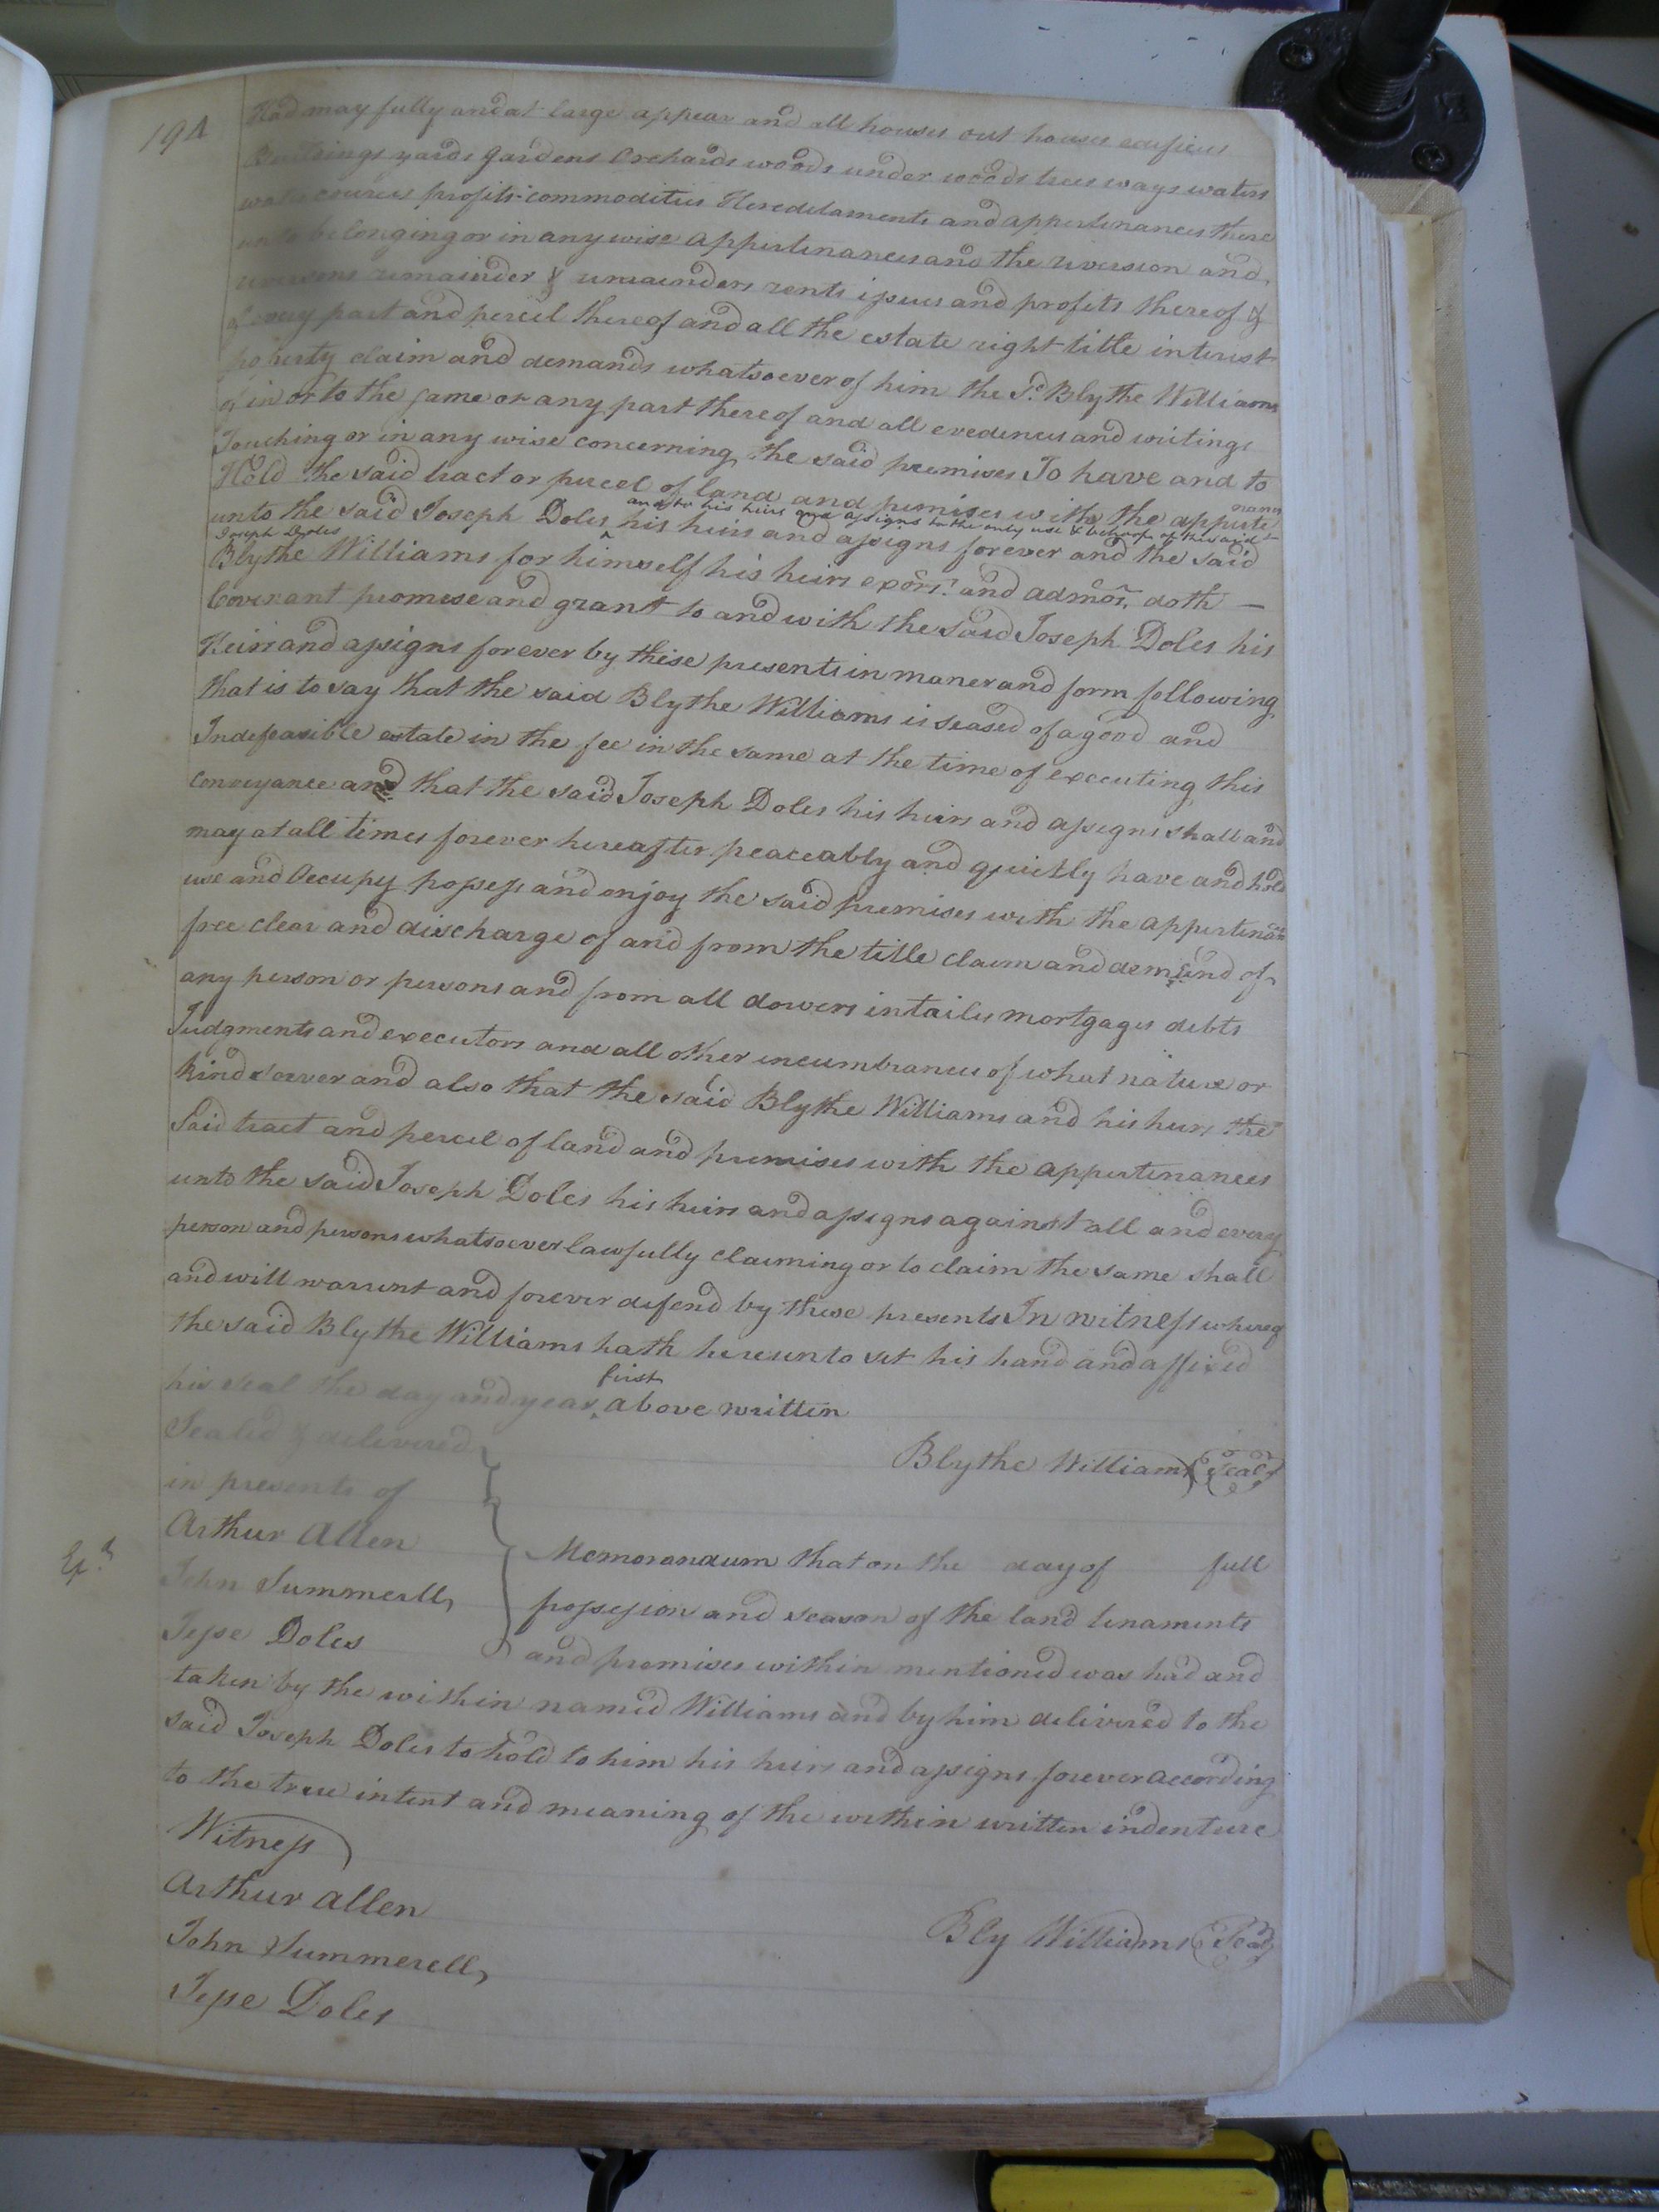 194
Had may fully and at large appear and all houses out houses edifices
Buildings yards Gardens Orchards woods under woods trees ways waters
water courses profits commodities Heredetaments and appertenances there
unto belonging or in any wise appertenances and the reversion and
reversions remainder & remainders rents issues and profits there of &
of every part and percel thereof and all the estate right title interest
property claim and demands whatsoever of him the Sd. Blythe Williams
of in or to the same or any part there of and all evedences and writings
Touching or in any wise concerning the said premises To have and to
Hold the said tract or percel of land and premises with the apperte
nances
unto the said Joseph Doles his heirs and assigns forever and the said
and to his heirs and assigns to the only use & behoof of the said
Joseph Doles
Blythe Williams for himself his heirs exors. and admors. doth —
Covenant promese and grant to and with the said Joseph Doles his
Heirs and assigns forever by these presents in maner and form following
that is to say that the said Blythe Williams is seased of a good and
Indefeasible estate in the fee in the same at the time of executing this
conveyance and that the said Joseph Doles his heirs and assegns shall and
may at all times forever hereafter peaceably and quietly have and hold
use and Occupy possess and enjoy the said premises with the appertenan
free clear and discharge of and from the title claim and demand of
any person or persons and from all dowers intailes mortgages debts
Judgments and executors and all other incumbrances of what nature or
kind soever and also that the said Blythe Williams and his heirs the
Said tract and percel of land and premises with the appertenances
unto the said Joseph Doles his heirs and assegns against all and every
person and persons whatsoever lawfully claiming or to claim the same shall
and will warrent and forever defend by these presents In witness whereof
the said Blythe Williams hath hereunto set his hand and affixed
first
his seal the day and year above written
Sealed & delivered
Blythe Williams Seal
in presents of
Arthur Allen
Memorandum that on the day of full
John Summerell
possession and season of the land tenaments
Jesse Doles
and premises within mentioned was had and
taken by the within named Williams and by him delivered to the
said Joseph Doles to hold to him his heirs and assigns forever according
to the true intent and meaning of the within written indenture
Witness
Arthur Allen
Bly Williams Seal
John Summerell
Jesse Doles